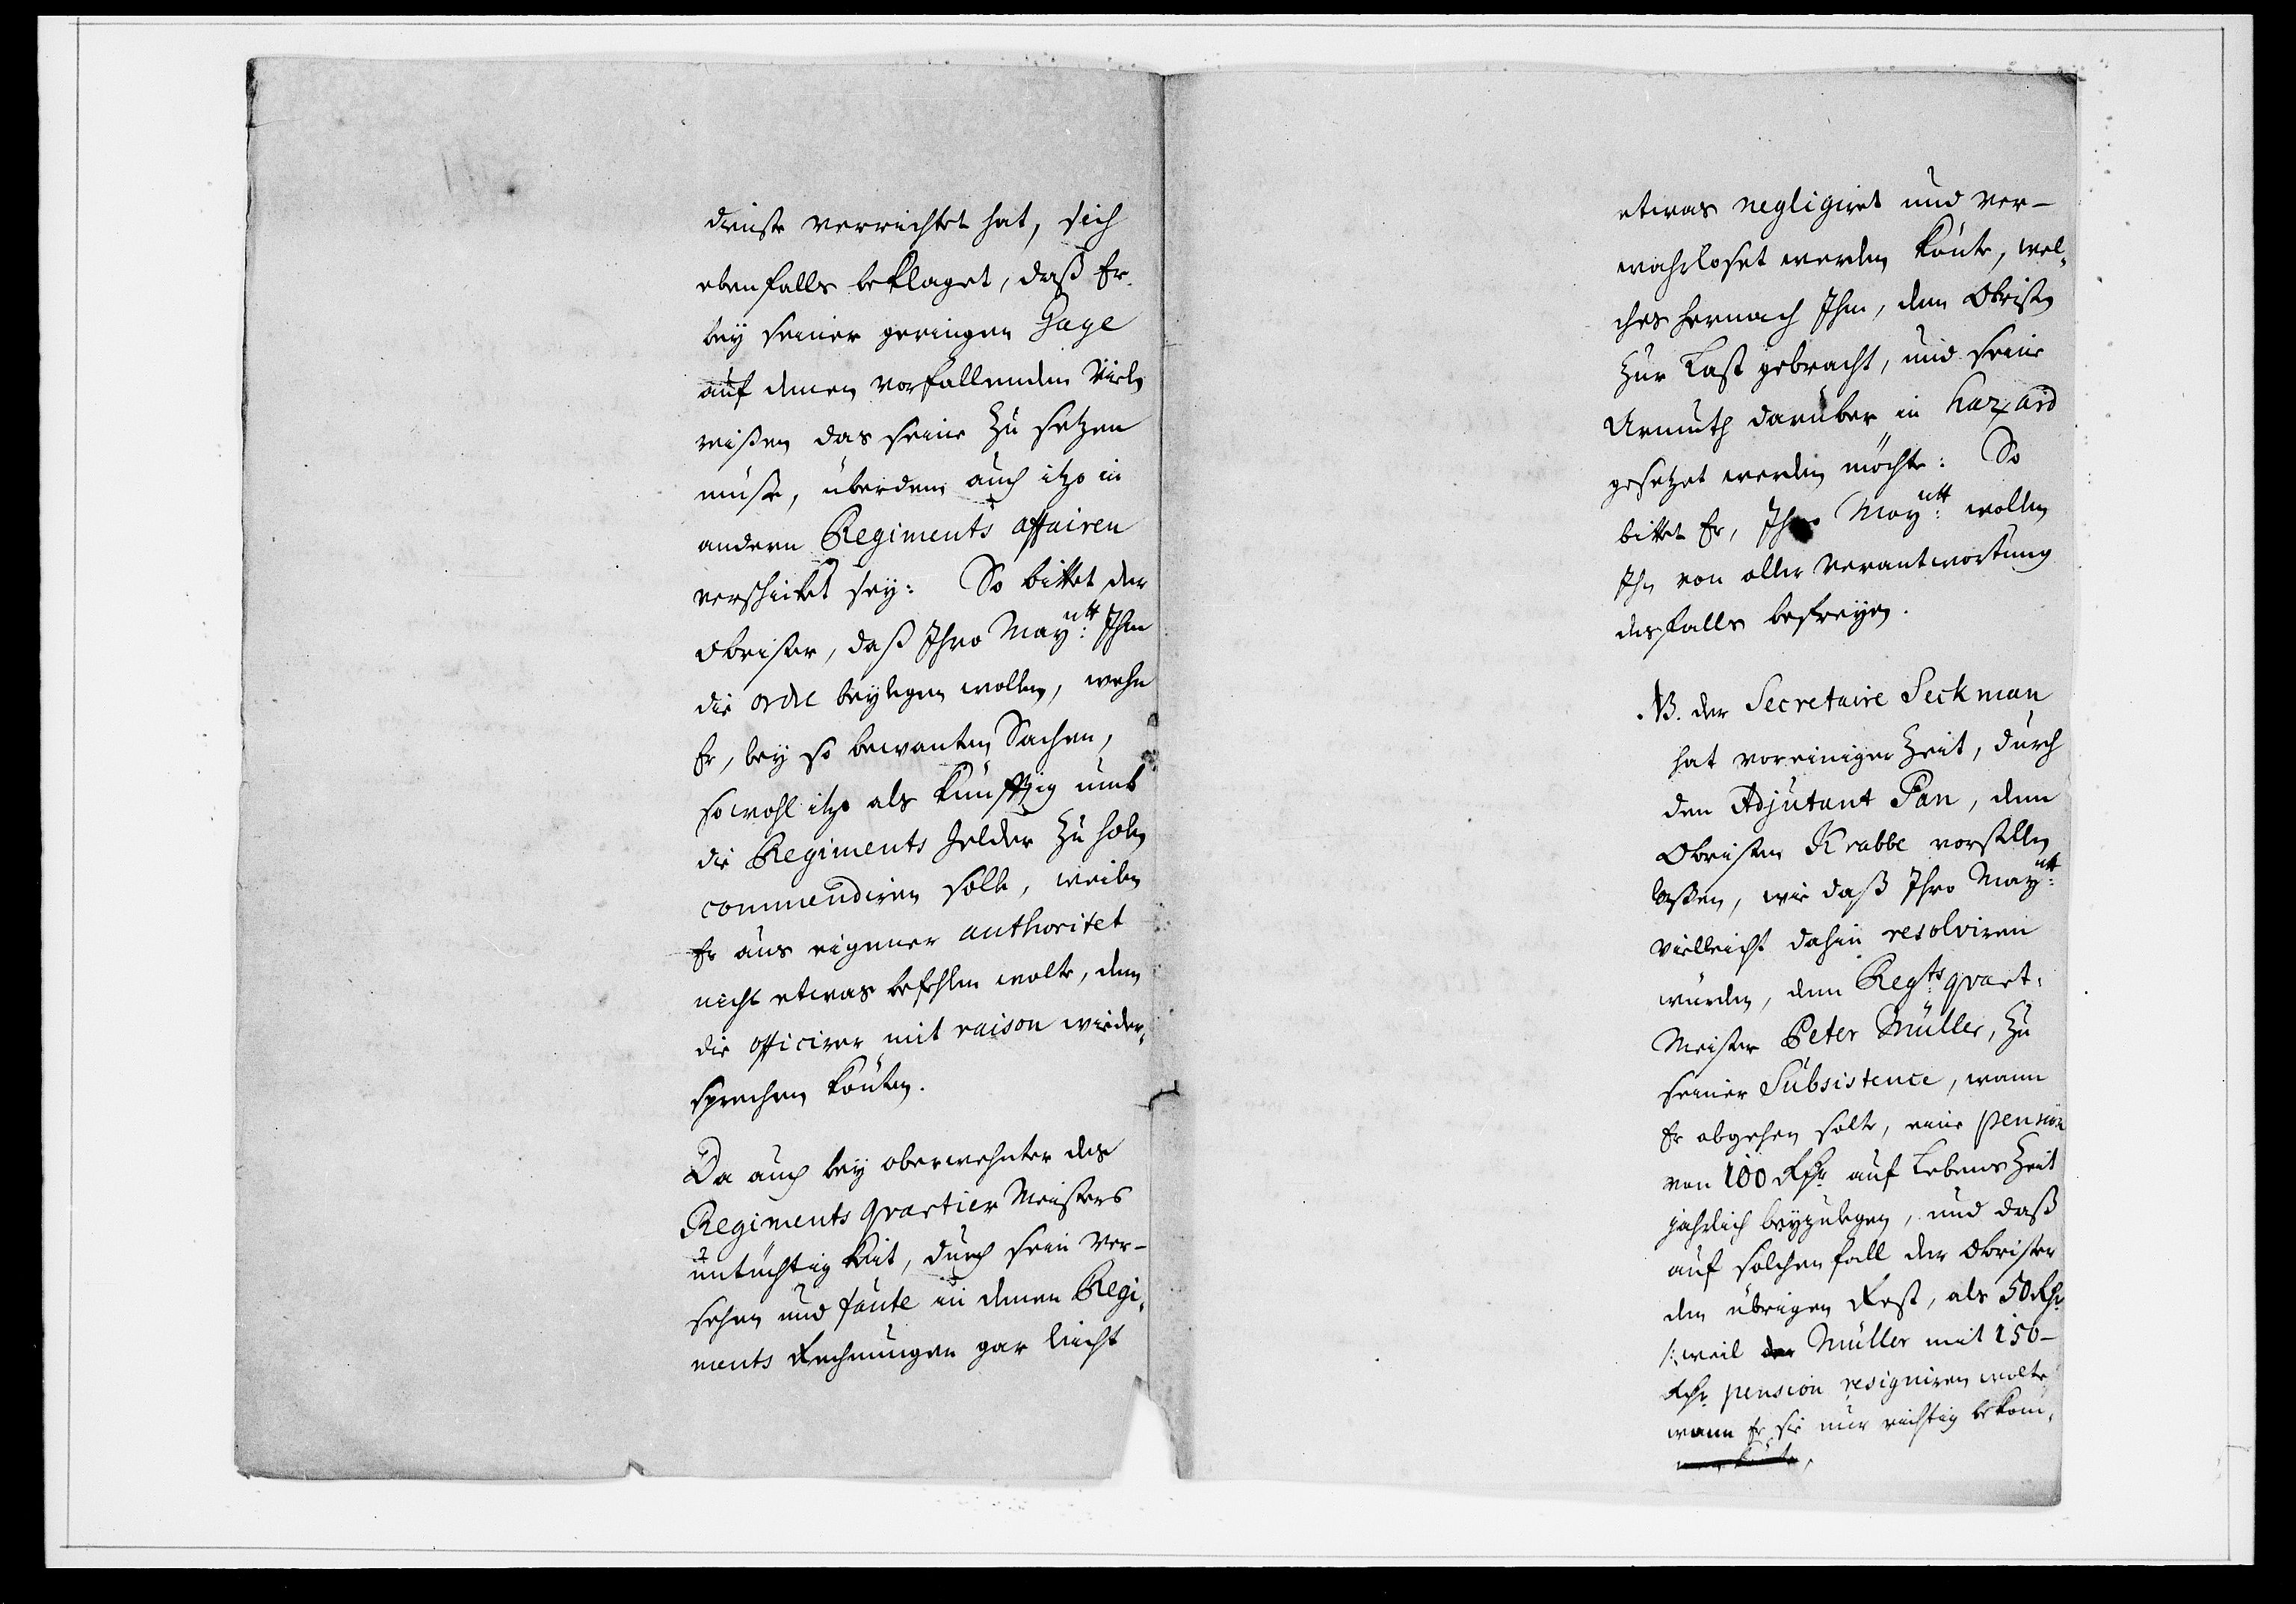 dienste verrichtet hat, sich
ebenfalls beklaget, daß Er
bey seiner geringen Gage
auf denen vorfallenden Viele
reißen das seine zu setzen
müste, überdem auch itzo in
andern Regiments affairen
verschicket sey: So bittet der
Obrister, daß Ihro Maytt: Ihm
die ordre beylegen wollen, wehn
Er, bey so bewanten Sachen,
sowohl itzo als künfftig umb
die Regiments Gelder zu holen
commendiren solle, weilen
Er aus eigener authoritet
nicht etwas befehlen wolte, dem
die officirer mit raison wieder-
sprechen könten.
Da auch bey oberwehnter des
Regiments Qvartier Meisters
untüchtigkeit, durch sein Ver-
sehen und faute in denen Regi-
ments Rechnungen gar leicht
etwas negligiret und ver-
wahrloset werden könte, wel-
ches hernach Ihm, dem Obristen
zur Last gebracht, und seine
Armuth darüber in hazard
gesetzet werden möchte: So
bittet Er, Ihro Maytt: wollen
Ihn von aller Verantwortung
desfalls befreyen.
NB. der Secretaire Seckman
hat voreiniger Zeit, durch
den Adjutant Pan, dem
Obristen Krabbe vorstellen
laßen, wie daß Ihro Maytt:
vielleicht dahin resolviren
würden, dem Regts qvart:
Meister Peter Müller, zu
seiner Subsistence, wann
Er abgehen solte, eine pension
von 100 Rthr auf Lebens Zeit
jährlich beyzulegen, und daß
auf solchen fall der Obrister
den übrigen Rest, als 50 Rthr
/: weil der Müller mit 150-
Rthr pension resigniren wolte
wann Er sie nur richtig bekom-
men könte,